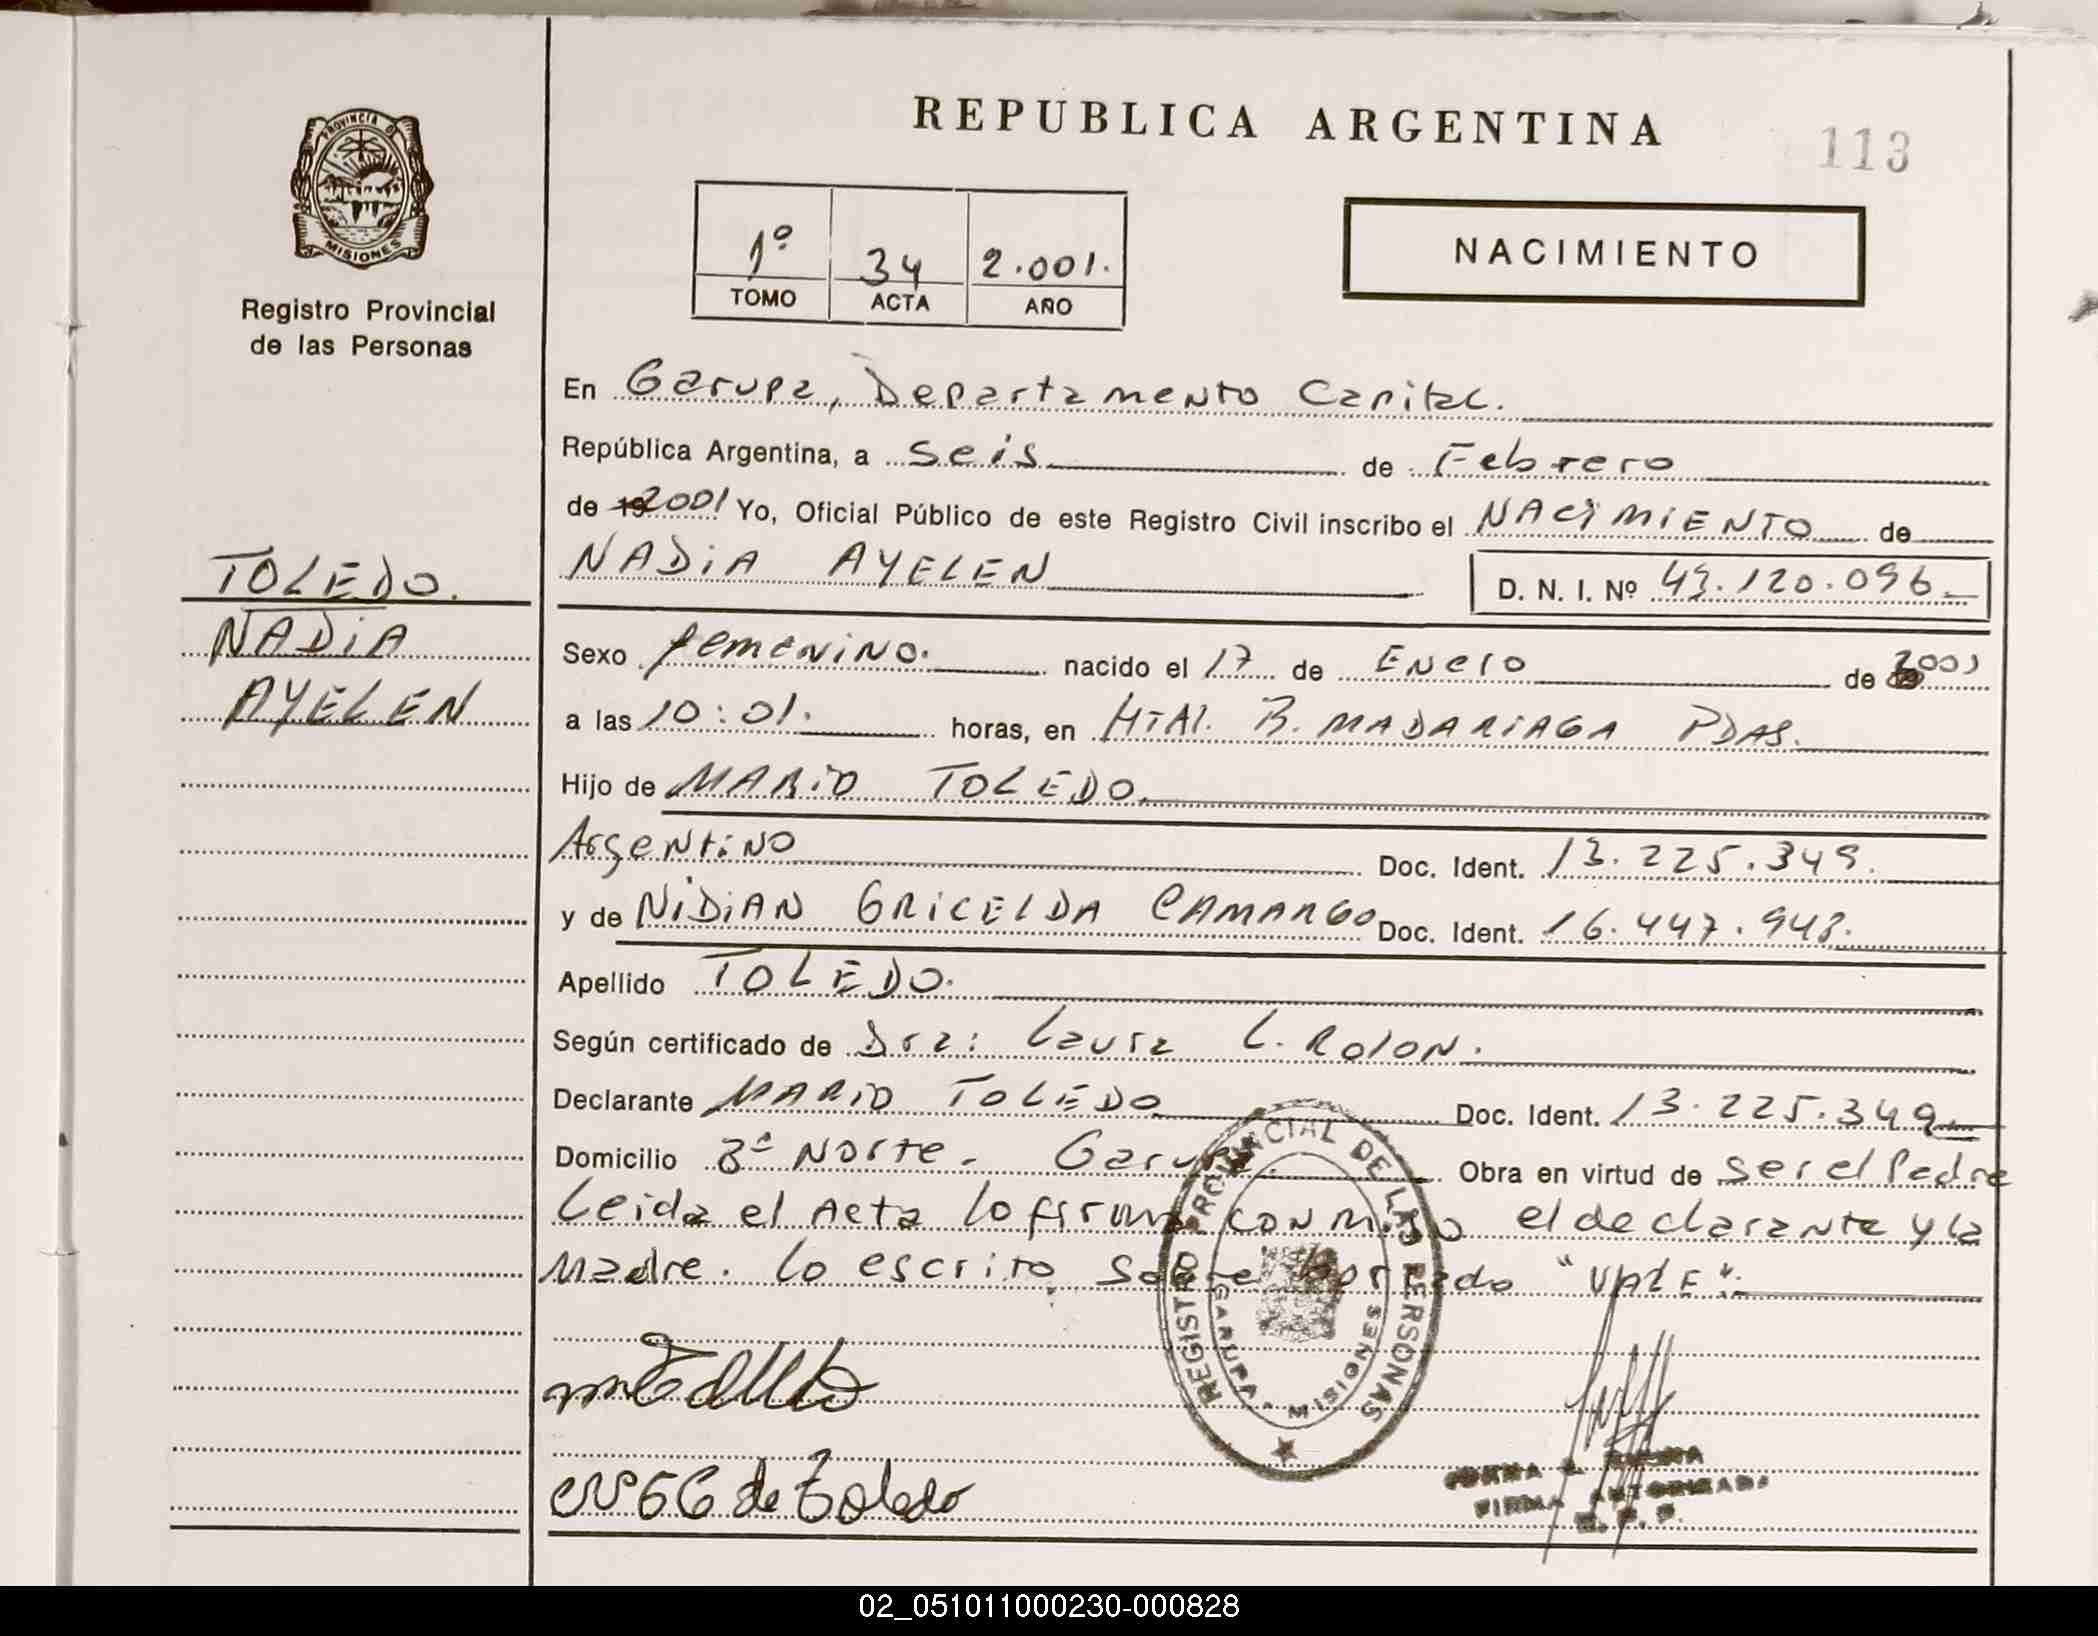 REPUBLICA ARGENTINA
113
PROVINCIA DE
MISIONES
Registro Provincial
de las Personas
1º 34 2.001.
TOMO ACTA AÑO
NACIMIENTO
En Garupa, Departamento Capital.
República Argentina, a seis de Febrero
de 2001 Yo, Oficial Público de este Registro Civil inscribo el NACIMIENTO de
TOLEDO.
NADIA AYELEN D. N. I. Nº 43.120.096
NADIA
AYELEN
Sexo femenino. nacido el 17 de Enero de 2001
a las 10:01. horas, en HTAl. R. MADARIAGA PDAS.
Hijo de MARIO TOLEDO.
Argentino Doc. Ident. 13.225.349.
y de NIDIAN GRICELDA CAMARGO Doc. Ident. 16.447.943.
Apellido TOLEDO.
Según certificado de Dra: Laura L. Rolon.
Declarante MARIO TOLEDO Doc. Ident. 13.225.349
Domicilio Bº Norte. Garupa. Obra en virtud de ser el Padre
Leida el Acta lo firma conmigo el declarante y la
Madre. lo escrito sobre borrado "VALE".
REGISTRO PROVINCIAL DE LAS PERSONAS
GARUPA - MISIONES
NGC de Toledo
FIRMA AUTORIZADA
R. P. P.
02_051011000230-000828